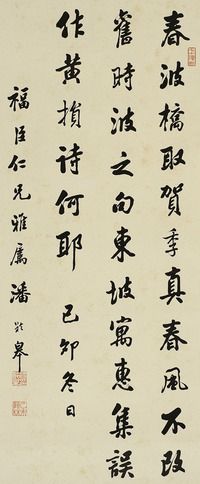 春波橋取賀季真春風不改
舊時波之句東坡寓惠集誤
作黃損詩何耶 己卯冬日
福臣仁兄雅屬 潘齡皋